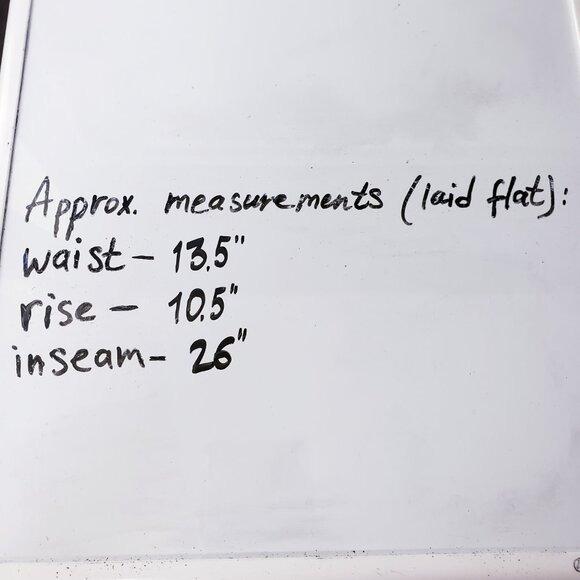 Approx. measurements (laid flat):
waist - 13.5"
rise - 10.5"
inseam - 26"